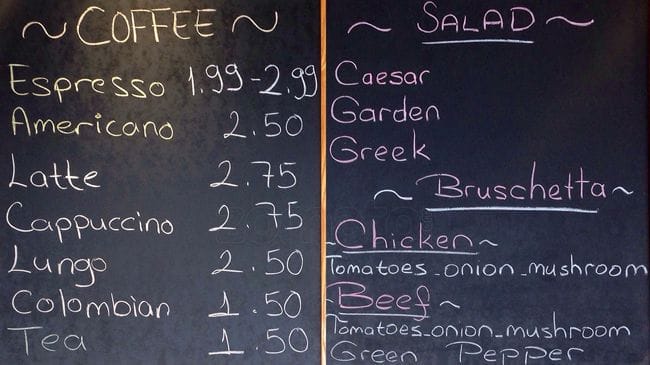 ~ COFFEE ~
Espresso 1.99-2.99
Americano 2.50
Latte 2.75
Cappuccino 2.75
Lungo 2.50
Colombian 1.50
Tea 1.50
~ SALAD ~
Caesar
Garden
Greek
~ Bruschetta ~
~Chicken~
Tomatoes-onion-mushroom
~Beef~
Tomatoes-onion-mushroom
Green Pepper